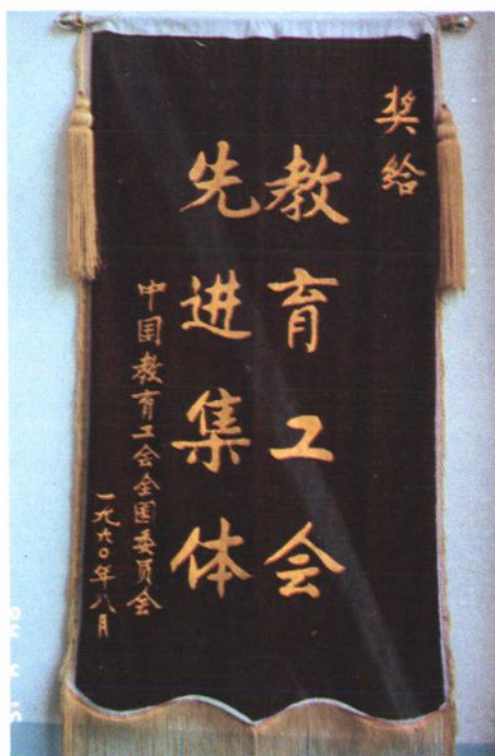 奖给
教育工会
先进集体
中国教育工会全国委员会
一九九〇年八月